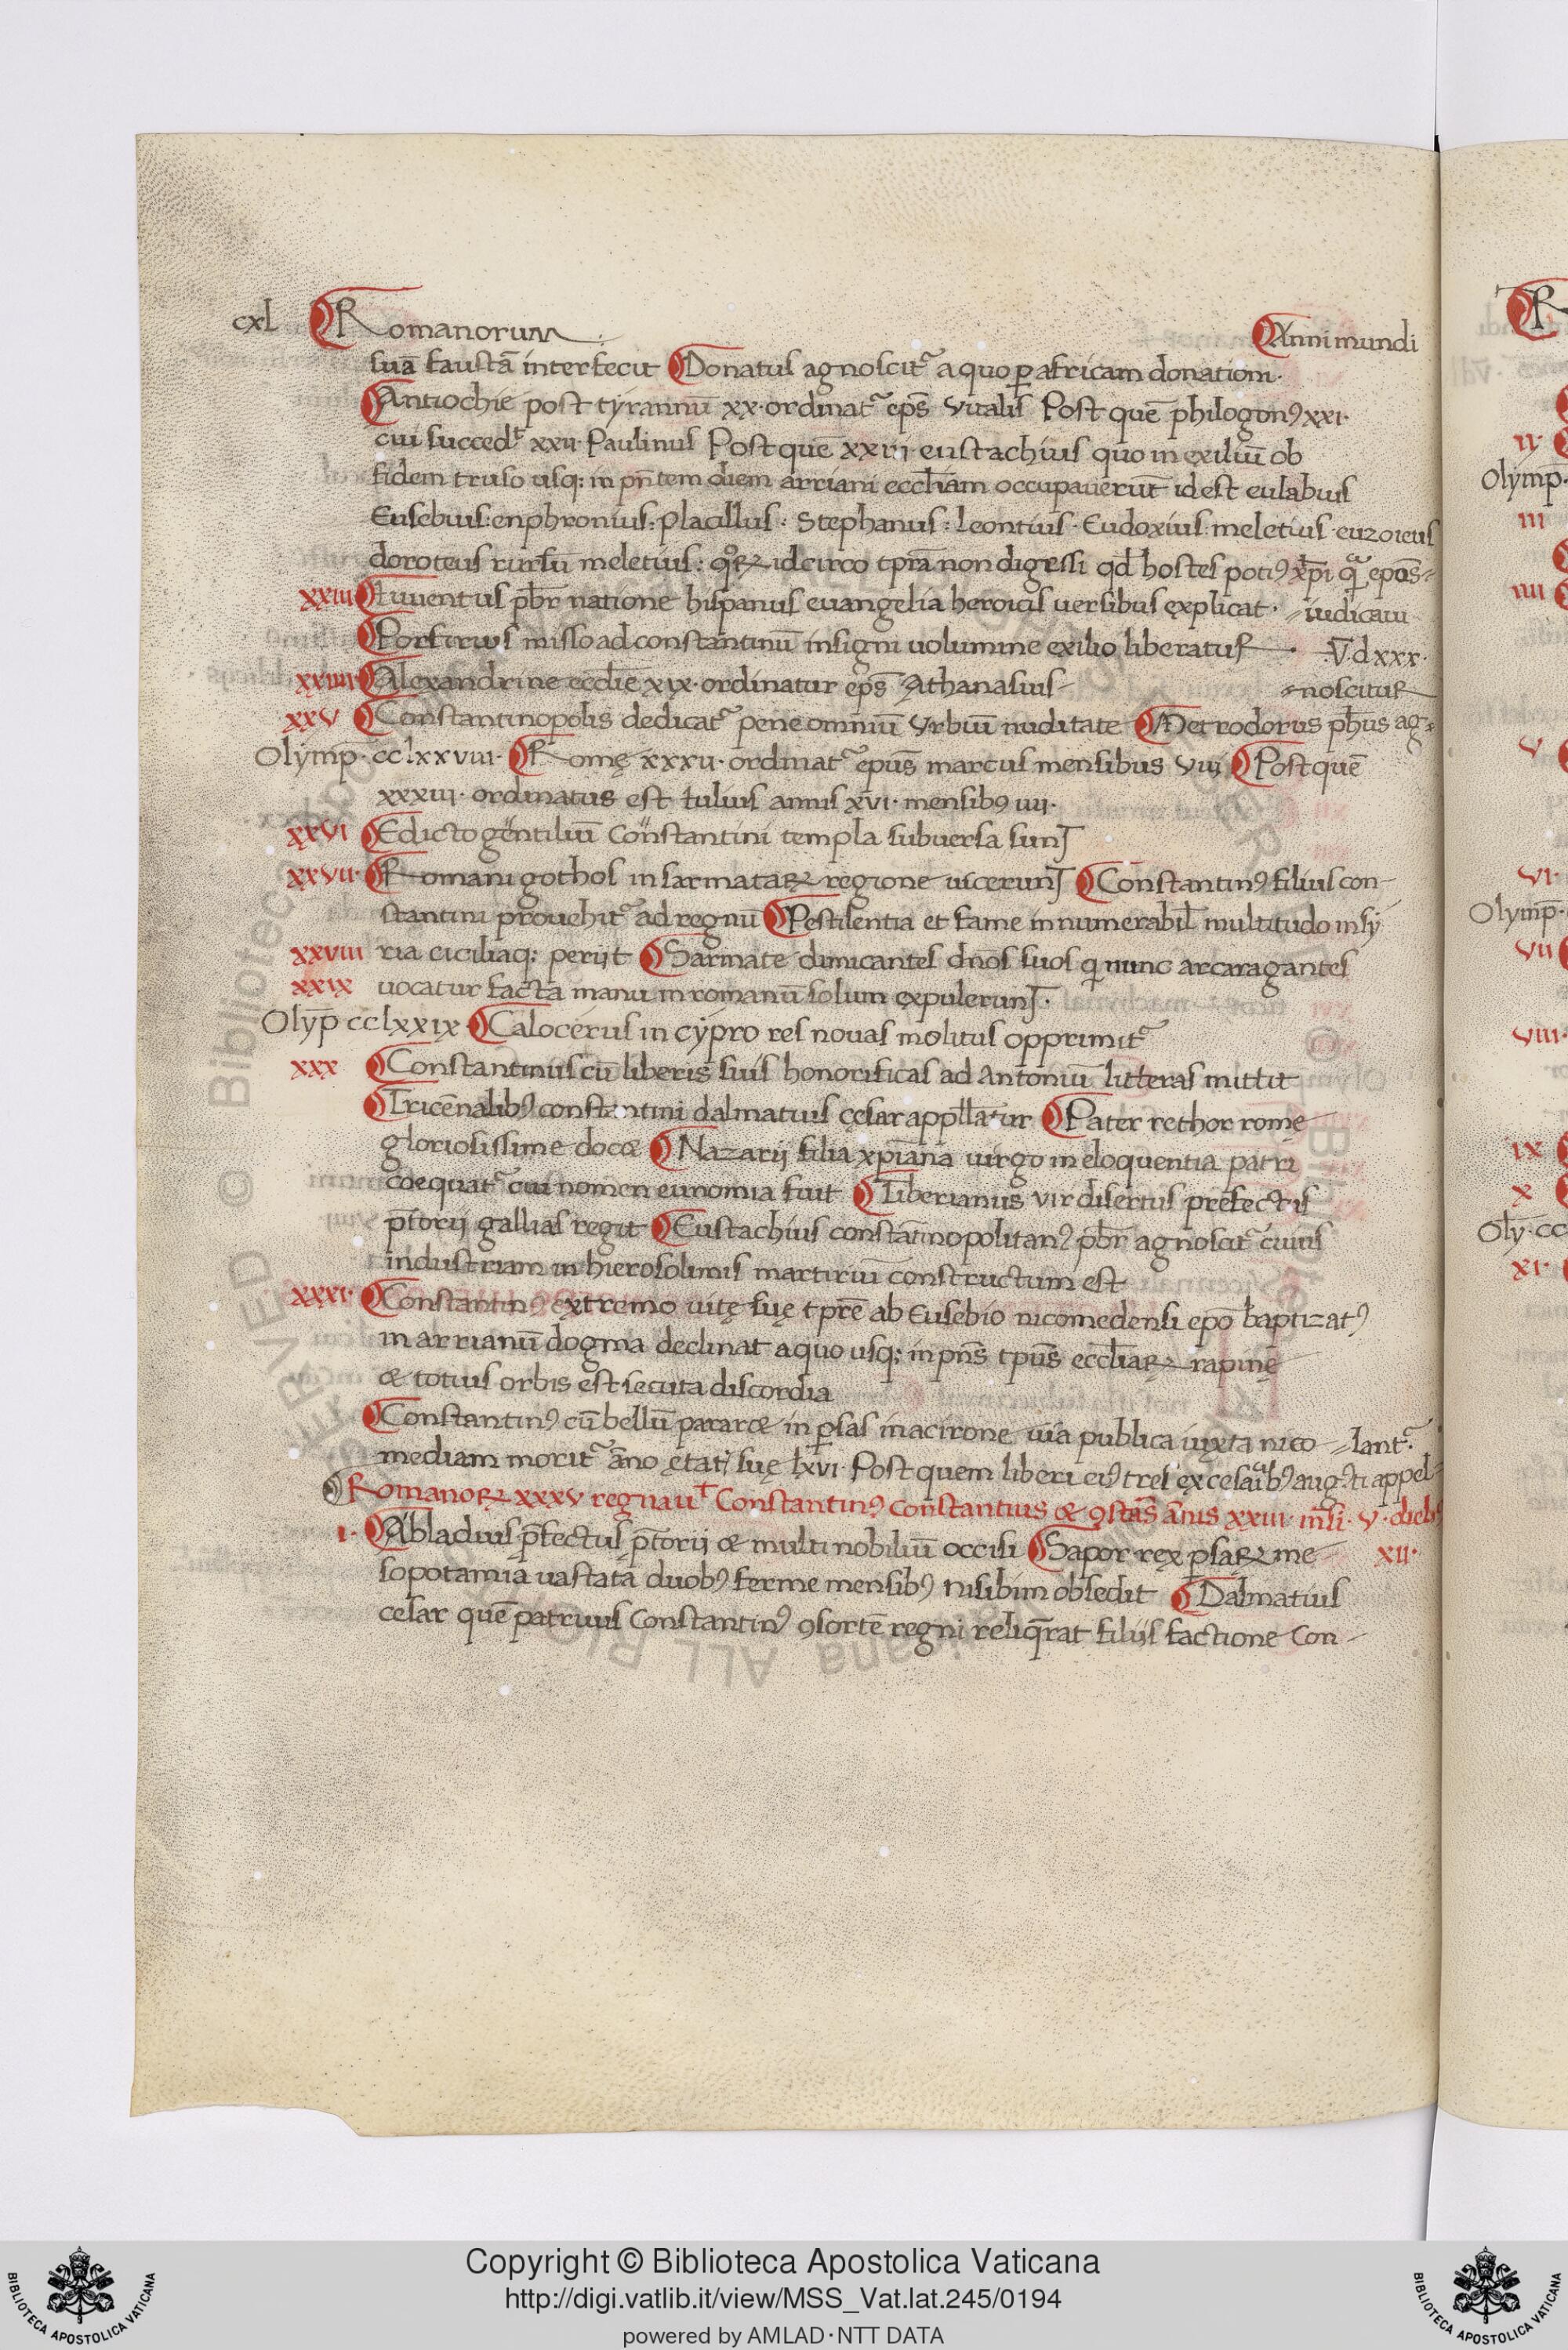 cxl Romanorum Anni mundi
suā faustā interfecit Donatus agnoscit᷑ a quo ꝑ africam donationi·
Antiochie post tyrannū xx· ordinat᷑ ep̄s vitalis Post quē philogonꝰ xxi·
cui succed͛t xxii· Paulinus Post quē xxiii eustachius quo in exiliū ob
fidem truso usq; in pn̄tem diem arriani eccl̄iam occupauerūt id est eulabius
Eusebius: enphronius: Placillus: Stephanus: leontius· Eudoxius· meletius· euzoieus
doroteus rursū meletius: qͦꝝ idcirco tp̄ra non digessi qd̄ hostes potiꝰ xp̄i qͣ̄ ep̄os
xxiii Iuuentus p̄br natione hispanus euangelia heroicis uersibus explicat· iudicaui
Porfirius misso ad constantinū insigni uolumine exilio liberatur V̄·dxxx·
xxiiii Alexandrine eccl̄ie xix· ordinatur ep̄s Athanasius noscitur
xxv Constantinopolis dedicat᷑ pene omniū vrbiū nuditate Metrodorus ph̄us ag
Olymp̄· cclxxviii· Romę xxxii· ordinat᷑ epūs marcus mensibus viii Post quē
xxxiii· ordinatus est Iulius annis xvi· mensibꝰ iiii·
xxvi Edicto gentiliū Constantini templa subuersa sunt
xxvii· Romani gothos in sarmataꝝ regione uicerunt Constantinꝰ filius con-
stantini prouehit᷑ ad regnū Pestilentia et fame innumerabil̄ multitudo in sy
xxviii ria ciciliaq; perijt Sarmate dimicantes dn̄os suos qͥ nunc arcaragantes
xxix uocatur facta manu in romanū solum expulerunt·
Olyp̄ cclxxix· Calocerus in cypro res nouas molitus opprimit᷑
xxx Constantinus cū liberis suis honorificas ad Antoniū litteras mittit
Tricēnalibꝰ constantini dalmatius cęsar appll̄atur Pater rethor romę
gloriosissime docet Nazarij filia xp̄iana uirgo in eloquentia patri
coequat᷑ cui nomen eunomia fuit Tiberianus vir disertus prefectus
p̄torij gallias regit Eustachius constātinopolitanꝰ p̄br agnoscit᷑ cuius
industriam in hierosolimis martiriū constructum est
xxxi· Constantinꝰ extremo uitę suę tp̄re ab Eusebio nicomedensi ep̄o baptizatꝰ
in arrianū dogma declinat a quo usq; in pn̄s tp̄us eccl̄iaꝝ rapinę
& totius orbis est secuta discordia
Constantinꝰ cū bellū pararet in ꝑsas in acirone uia publica iuxta nico lant᷑·
mediam morit᷑ āno ętatis suę lxvi· Post quem liberi eiꝰ tres ex cesaribꝰ augꝰti appel
Romanoꝝ xxxv regnauͭ Constantinꝰ Constantius & ꝯstās ānis xxiii· mēsi· v· diebꝰ
i· Abladius p̄fectus p̄torij & multi nobiliū occisi Sapor rex ꝑsaꝝ me xii·
sopotamia uastata duobꝰ ferme mensibꝰ nisibim obsedit Dalmatius
cesar quē patruus Constantinꝰ ꝯsortē regni reliq̄rat filijs factione Con-
Copyright © Biblioteca Apostolica Vaticana
http://digi.vatlib.it/view/MSS_Vat.lat.245/0194
powered by AMLAD·NTT DATA
BIBLIOTECA APOSTOLICA VATICANA
BIBLIOTECA APOSTOLICA VATICANA